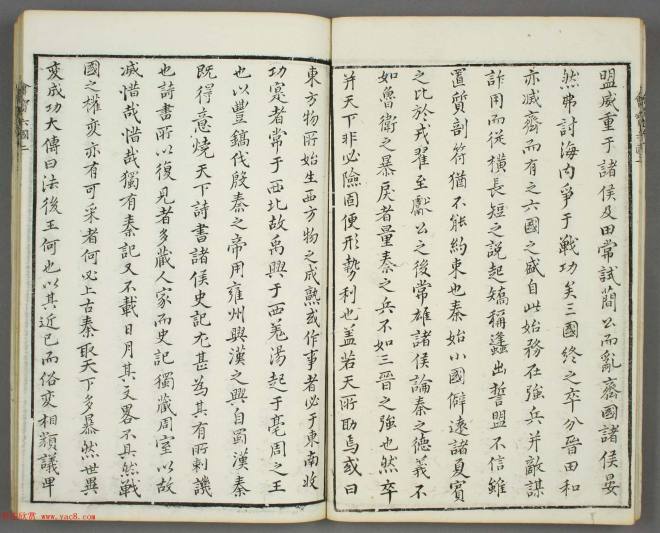 盟威重于諸侯及田常試蕳公而亂齋國諸侯晏
然弗討海内爭于戦功矣三國終之卒分晉田和
亦滅齋而有之六國之盛自此始務在強兵并敵謀
詐用而從橫長短之説起嬌稱蠭出誓盟不信雖
置質剖符猶不能約束也秦始小國僻遠諸夏賓
之比於戎翟至獻公之後常雄諸侯論秦之德義不
如魯衛之暴戾者量秦之兵不如三晉之強也然卒
并天下非必險固便形勢利也盖若天所助焉或曰
東方物所始生西方物之成熟或作事者必于東南收
功寔者常于西北故禹興于西羗湯起于亳周之王
也以豐鎬伐殷秦之帝用雍州興漢之興自蜀漢秦
既得意燒天下詩書諸侯史記尤甚為其有所刺譏
也詩書所以復見者多藏人家而史記獨藏周室以故
滅惜哉惜哉獨有秦記又不載日月其文畧不具然戦
國之權変亦有可采者何必上古秦取天下多暴然世異
変成功大傳曰法後王何也以其近已而俗変相類議卑
www.yac8.com